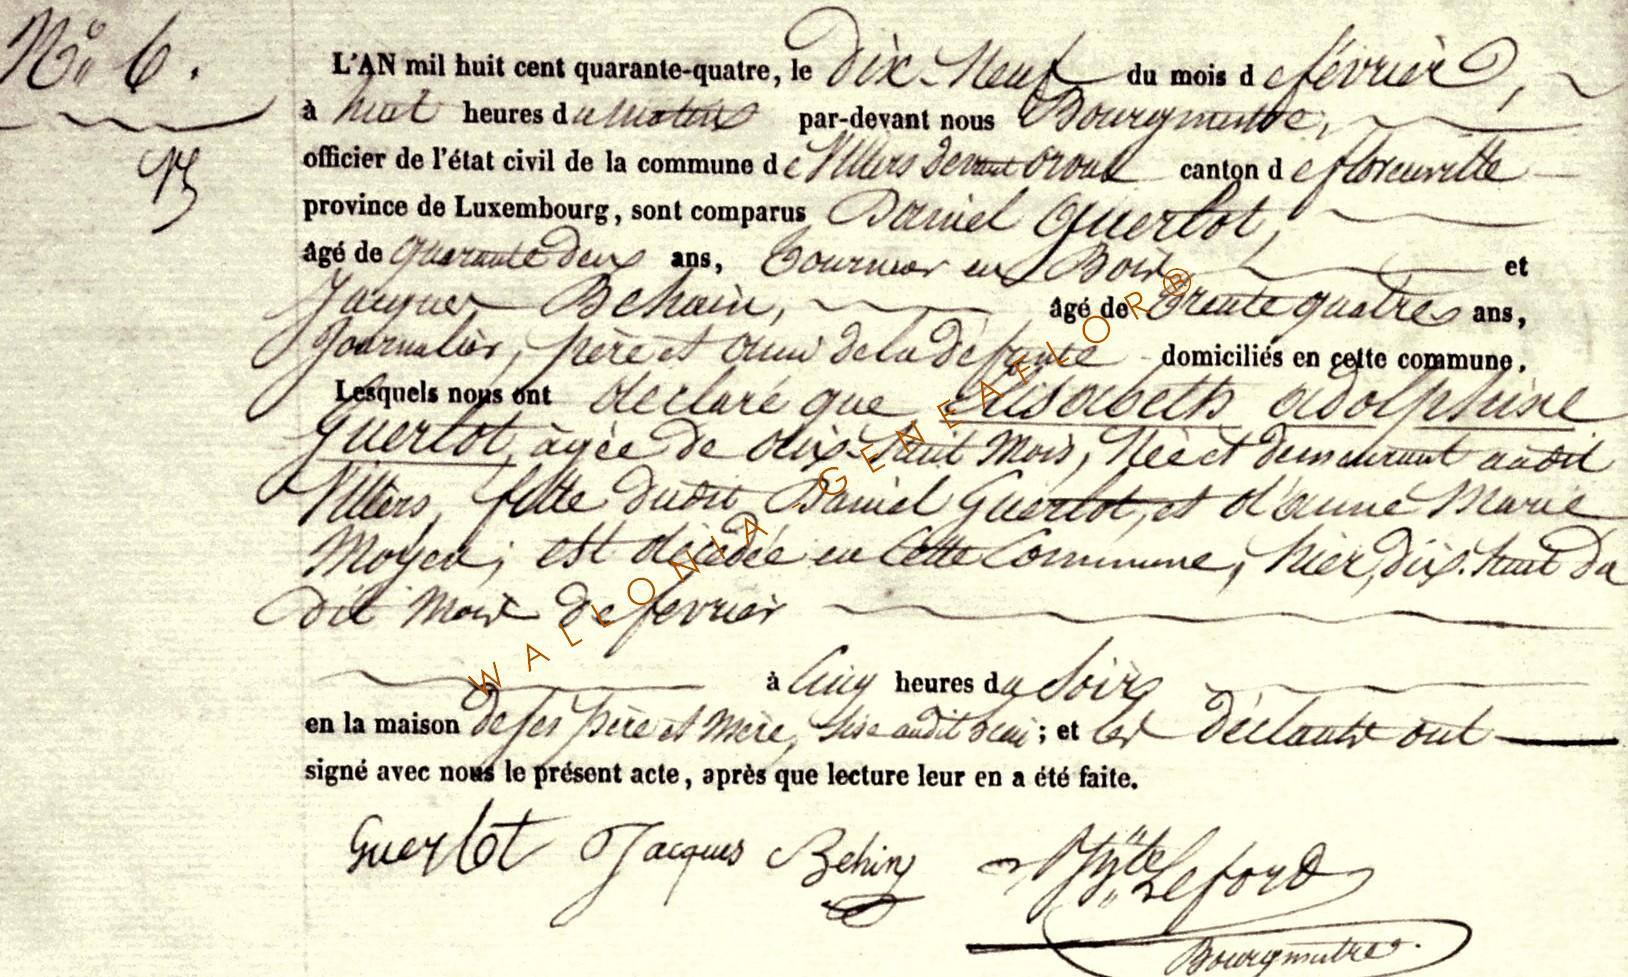 N° 6.
L'AN mil huit cent quarante-quatre, le dix-Neuf du mois de février,
à huit heures du matin par-devant nous Bourgmestre,
officier de l'état civil de la commune de Villers devant orval canton de florenville
province de Luxembourg, sont comparus Daniel Guerlot,
âgé de quarante deux ans, Tourneur en Bois et
Jacques Behain, âgé de trente quatre ans,
Journalier, père et ami de la défunte domiciliés en cette commune.
Lesquels nous ont declaré que Elisabeth adolphine
Guerlot, agée de dix-huit Mois, Née et demeurant audit
Villers, fille dudit Daniel Guerlot, et d'anne Marie
Moyen; est décédée en cette Commune, hier, dix-huit du
dit Mois de février
à Cinq heures du Soir
en la maison de ses père et Mère, sise audit lieu; et les déclarants ont
signé avec nous le présent acte, après que lecture leur en a été faite.
Guerlot Jacques Behin Hyte Leford
Bourgmestre.
WALLONIA - GENEAFLOR®